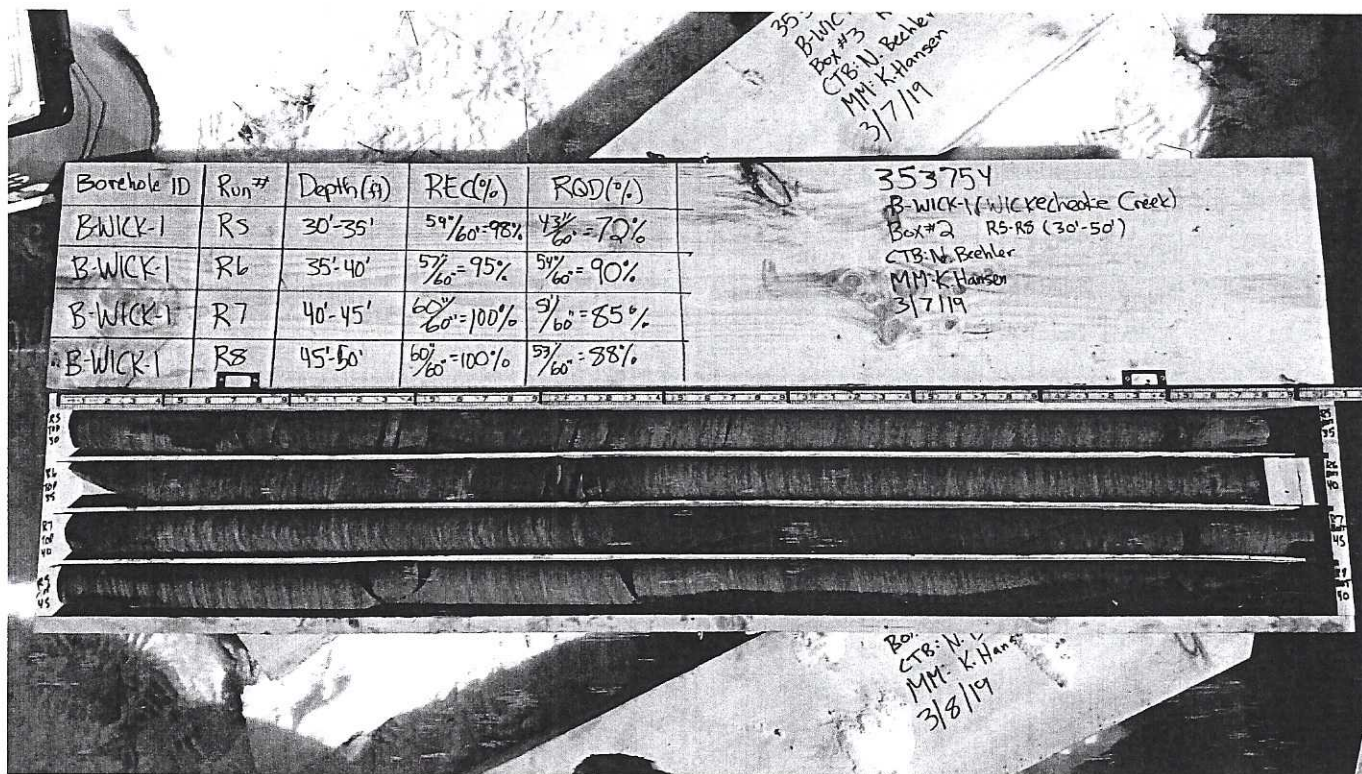 B-WIC
Box #3
CTB: N. Beehler
MM: K. Hansen
3/7/19
Borehole ID Run# Depth (ft) REC(%) RQD(%)
B-WICK-1 R5 30'-35' 59"/60"=98% 43"/60"=72%
B-WICK-1 R6 35'-40' 57"/60"=95% 54"/60"=90%
B-WICK-1 R7 40'-45' 60"/60"=100% 51"/60"=85%
B-WICK-1 R8 45'-50' 60"/60"=100% 53"/60"=88%
353754
B-WICK-1 (Wickecheoke Creek)
Box#2 R5-R8 (30'-50')
CTB: N. Beehler
MM: K Hansen
3/7/19
R5
TOP
30
35
R6
TOP
35
R6
40
R7
TOP
40
R7
45
45
CTB: N.
MM: K. Hans
3/8/19